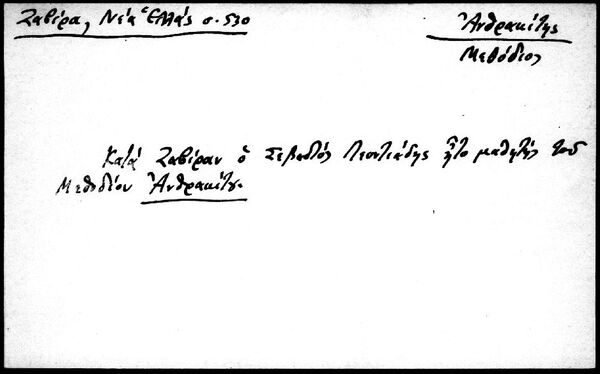 Ζαβίρα, Νέα Ἑλλάς σ. 530
Ἀνθρακίτης
Μεθόδιος
Κατά Ζαβίραν ὁ Σεβαστός Λεοντιάδης ἦτο μαθητής τοῦ
Μεθοδίου Ἀνθρακίτου